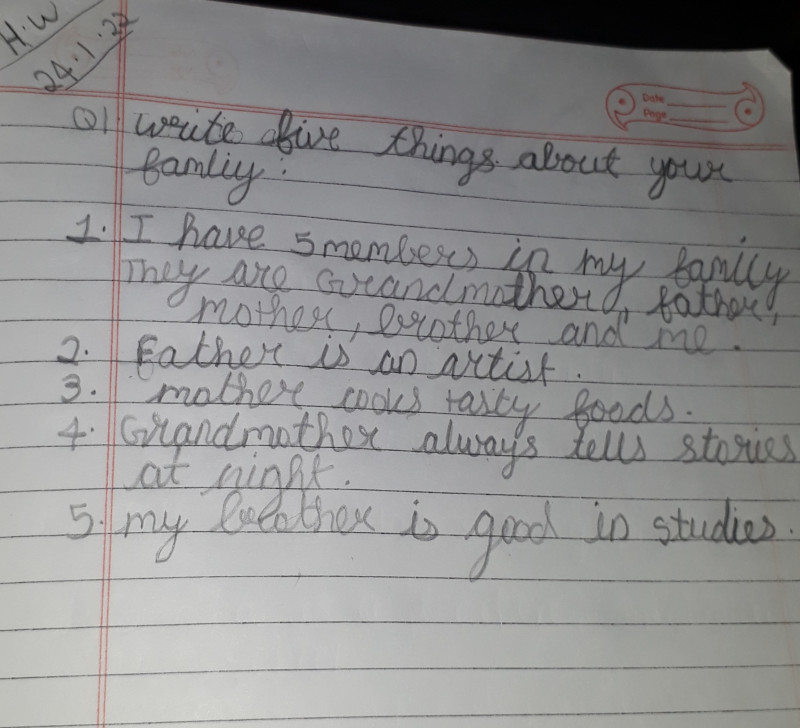 H.W
24.1.22
Date
Page
Q1 Write five things about your
famliy:
1. I have 5 members in my family
They are Grandmother, father,
mother, brother and me.
2. Father is an artist.
3. mother cooks tasty foods.
4. Grandmother always tells stories
at night.
5. my brother is good in studies.